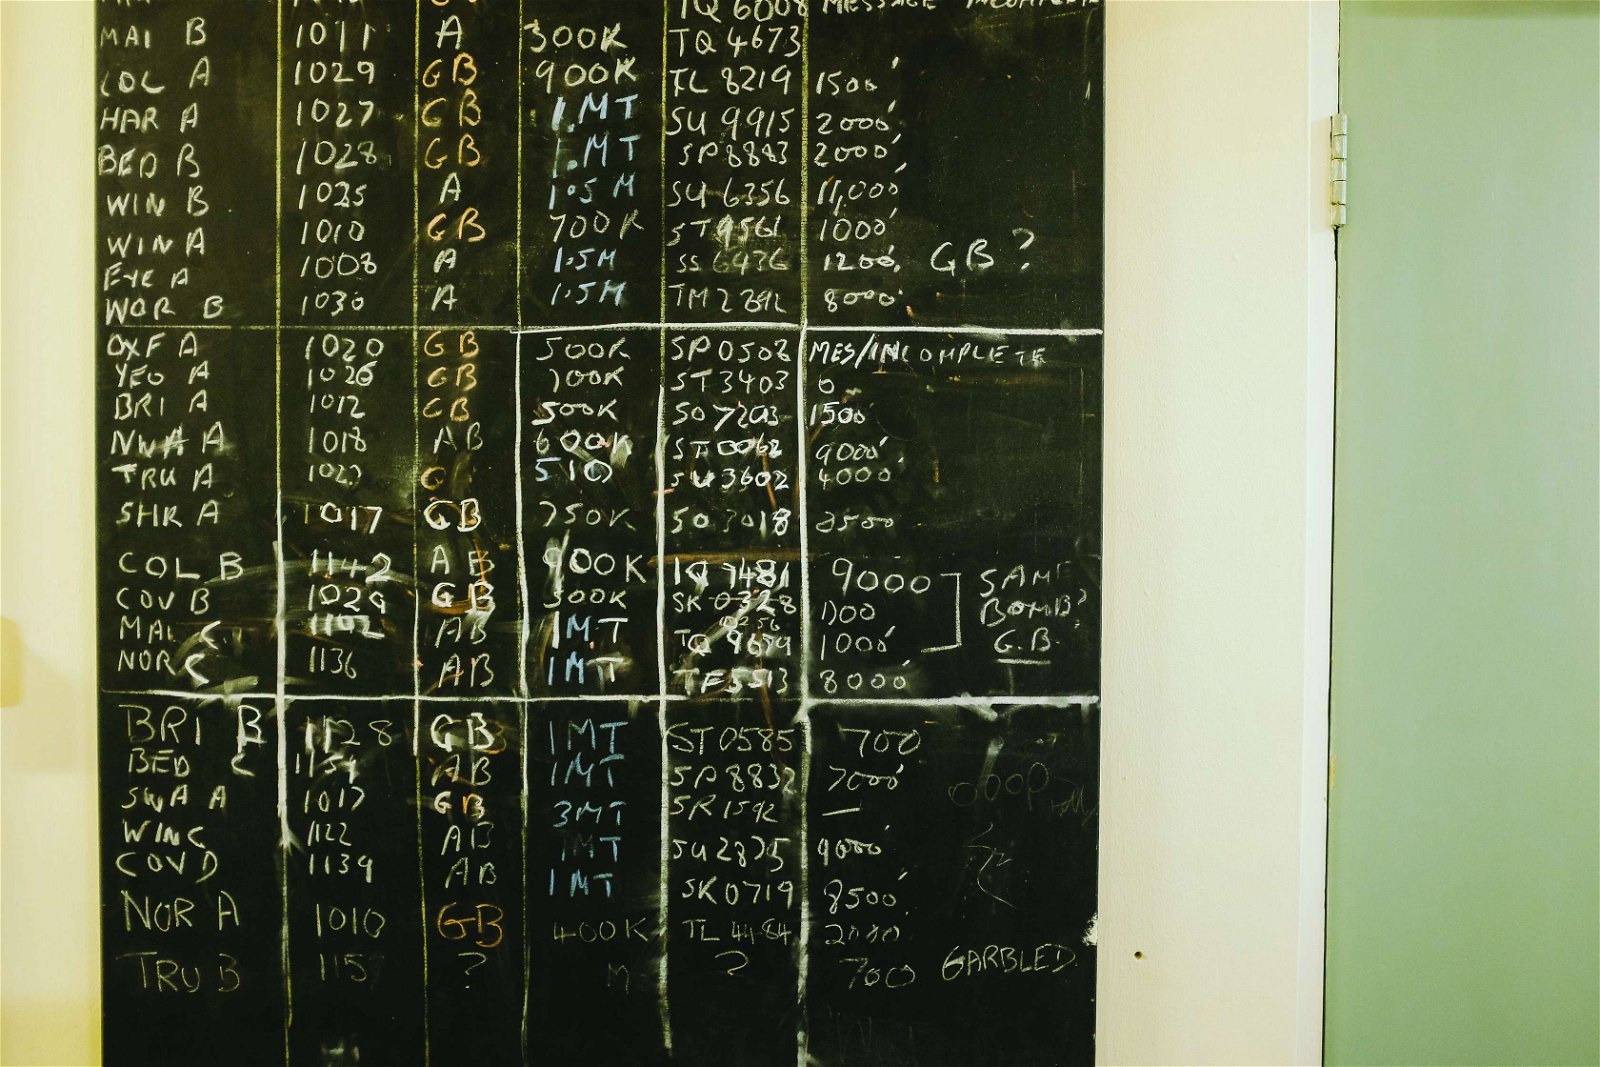 TQ 6008 MESSAGE INCOMPLETE
MAI B 1011 A 300K TQ 4673
COL A 1029 GB 900K TL 8219 1500'
HAR A 1027 GB 1.MT SU 9915 2000'
BED B 1028 GB 1.MT SP 8883 2000'
WIN B 1025 A 1.5M SU 6356 11,000'
WIN A 1010 GB 700K ST 9561 1000'
EYE A 1008 A 1.5M SS 6436 1200' GB?
WOR B 1030 A 1.5M TM 2892 8000'
OXF A 1020 GB 500K SP 0502 MES/INCOMPLETE
YEO A 1026 GB 700K ST 3403 0
BRI A 1012 GB 500K SO 7203 1500'
NWA A 1018 AB 600K ST 0062 9000'
TRU A 1027 G 510 SU 3602 4000'
SHR A 1017 GB 750K SO 3018 2500
COL B 1142 AB 900K TQ 7481 9000 SAME
COV B 1029 GB 500K SK 0328 1700 BOMB?
MAI C 1102 AB 1MT TQ 9679 1000' G.B.
NOR C 1136 AB 1MT TF 5513 8000'
BRI B 1128 GB 1MT ST 0585 700
BED C 1154 AB 1MT SP 8832 7000'
SWA A 1017 GB 3MT SR 1592 —
WIN C 1122 AB 1MT SU 2835 9000'
COV D 1139 AB 1MT SK 0719 8500'
NOR A 1010 GB 400K TL 4484 2000
TRU B 115 ? M ? 700 GARBLED